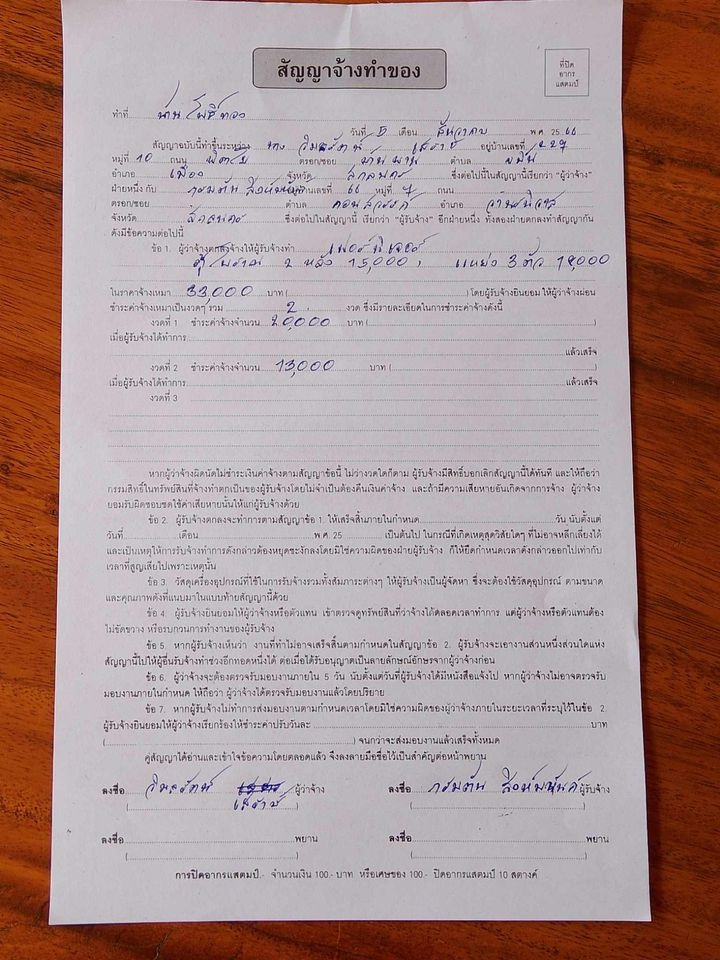 สัญญาจ้างทำของ
ที่ปิด
อากร
แสตมป์
ทำที่ บ้านโพธิ์ทอง
วันที่ 5 เดือน ธันวาคม พ.ศ. 25 66
สัญญาฉบับนี้ทำขึ้นระหว่าง นาง วิมลรัตน์ เสราช อยู่บ้านเลขที่ 227
หมู่ที่ 10 ถนน ตรอก/ซอย ตำบล ขมิ้น
อำเภอ เมือง จังหวัด สกลนคร ซึ่งต่อไปในสัญญานี้เรียกว่า "ผู้ว่าจ้าง"
ฝ่ายหนึ่ง กับ บ้านเลขที่ 66 หมู่ที่ 7 ถนน
ตรอก/ซอย ตำบล คอนสวรรค์ อำเภอ วานรนิวาส
จังหวัด สกลนคร ซึ่งต่อไปในสัญญานี้ เรียกว่า "ผู้รับจ้าง" อีกฝ่ายหนึ่ง ทั้งสองฝ่ายตกลงทำสัญญากัน
ดังมีข้อความต่อไปนี้
ข้อ 1. ผู้ว่าจ้างตกลงจ้างให้ผู้รับจ้างทำ เฟอร์นิเจอร์
ตู้ 2 หลัง 15,000 , 3 ตัว 18,000
ในราคาจ้างเหมา 33,000 บาท ( ) โดยผู้รับจ้างยินยอมให้ผู้ว่าจ้างผ่อน
ชำระค่าจ้างเหมาเป็นงวดๆ รวม 2 งวด ซึ่งมีรายละเอียดในการชำระค่าจ้างดังนี้
งวดที่ 1 ชำระค่าจ้างจำนวน 20,000 บาท ( )
เมื่อผู้รับจ้างได้ทำการ
แล้วเสร็จ
งวดที่ 2 ชำระค่าจ้างจำนวน 13,000 บาท ( )
เมื่อผู้รับจ้างได้ทำการ แล้วเสร็จ
งวดที่ 3
หากผู้ว่าจ้างผิดนัดไม่ชำระเงินค่าจ้างตามสัญญาข้อนี้ ไม่ว่างวดใดก็ตาม ผู้รับจ้างมีสิทธิ์บอกเลิกสัญญานี้ได้ทันที และให้ถือว่า
กรรมสิทธิ์ในทรัพย์สินที่จ้างทำตกเป็นของผู้รับจ้างโดยไม่จำเป็นต้องคืนเงินค่าจ้าง และถ้ามีความเสียหายอันเกิดจากการจ้าง ผู้ว่าจ้าง
ยอมรับผิดชอบชดใช้ค่าเสียหายนั้นให้แก่ผู้รับจ้างด้วย
ข้อ 2. ผู้รับจ้างตกลงจะทำการตามสัญญาข้อ 1. ให้เสร็จสิ้นภายในกำหนด วัน นับตั้งแต่
วันที่ เดือน พ.ศ. 25 เป็นต้นไป ในกรณีที่เกิดเหตุสุดวิสัยใดๆ ที่ไม่อาจหลีกเลี่ยงได้
และเป็นเหตุให้การรับจ้างทำการดังกล่าวต้องหยุดชะงักลงโดยมิใช่ความผิดของฝ่ายผู้รับจ้าง ก็ให้ยืดกำหนดเวลาดังกล่าวออกไปเท่ากับ
เวลาที่สูญเสียไปเพราะเหตุนั้น
ข้อ 3. วัสดุเครื่องอุปกรณ์ที่ใช้ในการรับจ้างรวมทั้งสัมภาระต่างๆ ให้ผู้รับจ้างเป็นผู้จัดหา ซึ่งจะต้องใช้วัสดุอุปกรณ์ ตามขนาด
และคุณภาพดังที่แนบมาในแบบท้ายสัญญานี้ด้วย
ข้อ 4. ผู้รับจ้างยินยอมให้ผู้ว่าจ้างหรือตัวแทน เข้าตรวจดูทรัพย์สินที่ว่าจ้างได้ตลอดเวลาทำการ แต่ผู้ว่าจ้างหรือตัวแทนต้อง
ไม่ขัดขวาง หรือรบกวนการทำงานของผู้รับจ้าง
ข้อ 5. หากผู้รับจ้างเห็นว่า งานที่ทำไม่อาจเสร็จสิ้นตามกำหนดในสัญญาข้อ 2. ผู้รับจ้างจะเอางานส่วนหนึ่งส่วนใดแห่ง
สัญญานี้ไปให้ผู้อื่นรับจ้างทำช่วงอีกทอดหนึ่งได้ ต่อเมื่อได้รับอนุญาตเป็นลายลักษณ์อักษรจากผู้ว่าจ้างก่อน
ข้อ 6. ผู้ว่าจ้างจะต้องตรวจรับมอบงานภายใน 5 วัน นับตั้งแต่วันที่ผู้รับจ้างได้มีหนังสือแจ้งไป หากผู้ว่าจ้างไม่อาจตรวจรับ
มอบงานภายในกำหนด ให้ถือว่า ผู้ว่าจ้างได้ตรวจรับมอบงานแล้วโดยปริยาย
ข้อ 7. หากผู้รับจ้างไม่ทำการส่งมอบงานตามกำหนดเวลาโดยมิใช่ความผิดของผู้ว่าจ้างภายในระยะเวลาที่ระบุไว้ในข้อ 2.
ผู้รับจ้างยินยอมให้ผู้ว่าจ้างเรียกร้องให้ชำระค่าปรับวันละ บาท
( ) จนกว่าจะส่งมอบงานแล้วเสร็จทั้งหมด
คู่สัญญาได้อ่านและเข้าใจข้อความโดยตลอดแล้ว จึงลงลายมือชื่อไว้เป็นสำคัญต่อหน้าพยาน
ลงชื่อ วิมลรัตน์ ผู้ว่าจ้าง ลงชื่อ ผู้รับจ้าง
( เสราช ) ( )
ลงชื่อ พยาน ลงชื่อ พยาน
( ) ( )
การปิดอากรแสตมป์.- จำนวนเงิน 100.- บาท หรือเศษของ 100.- ปิดอากรแสตมป์ 10 สตางค์